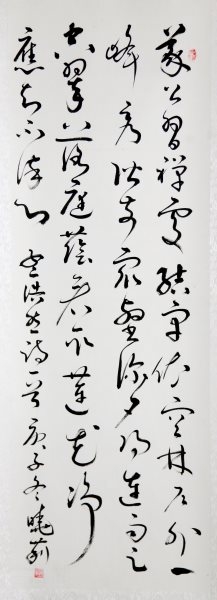 義公習禪處結宇依空林户外一
峰秀階前衆壑深夕陽連雨足
空翠落庭蔭看取蓮花淨
應知不染心 孟浩然詩一首 庚子冬曉莉